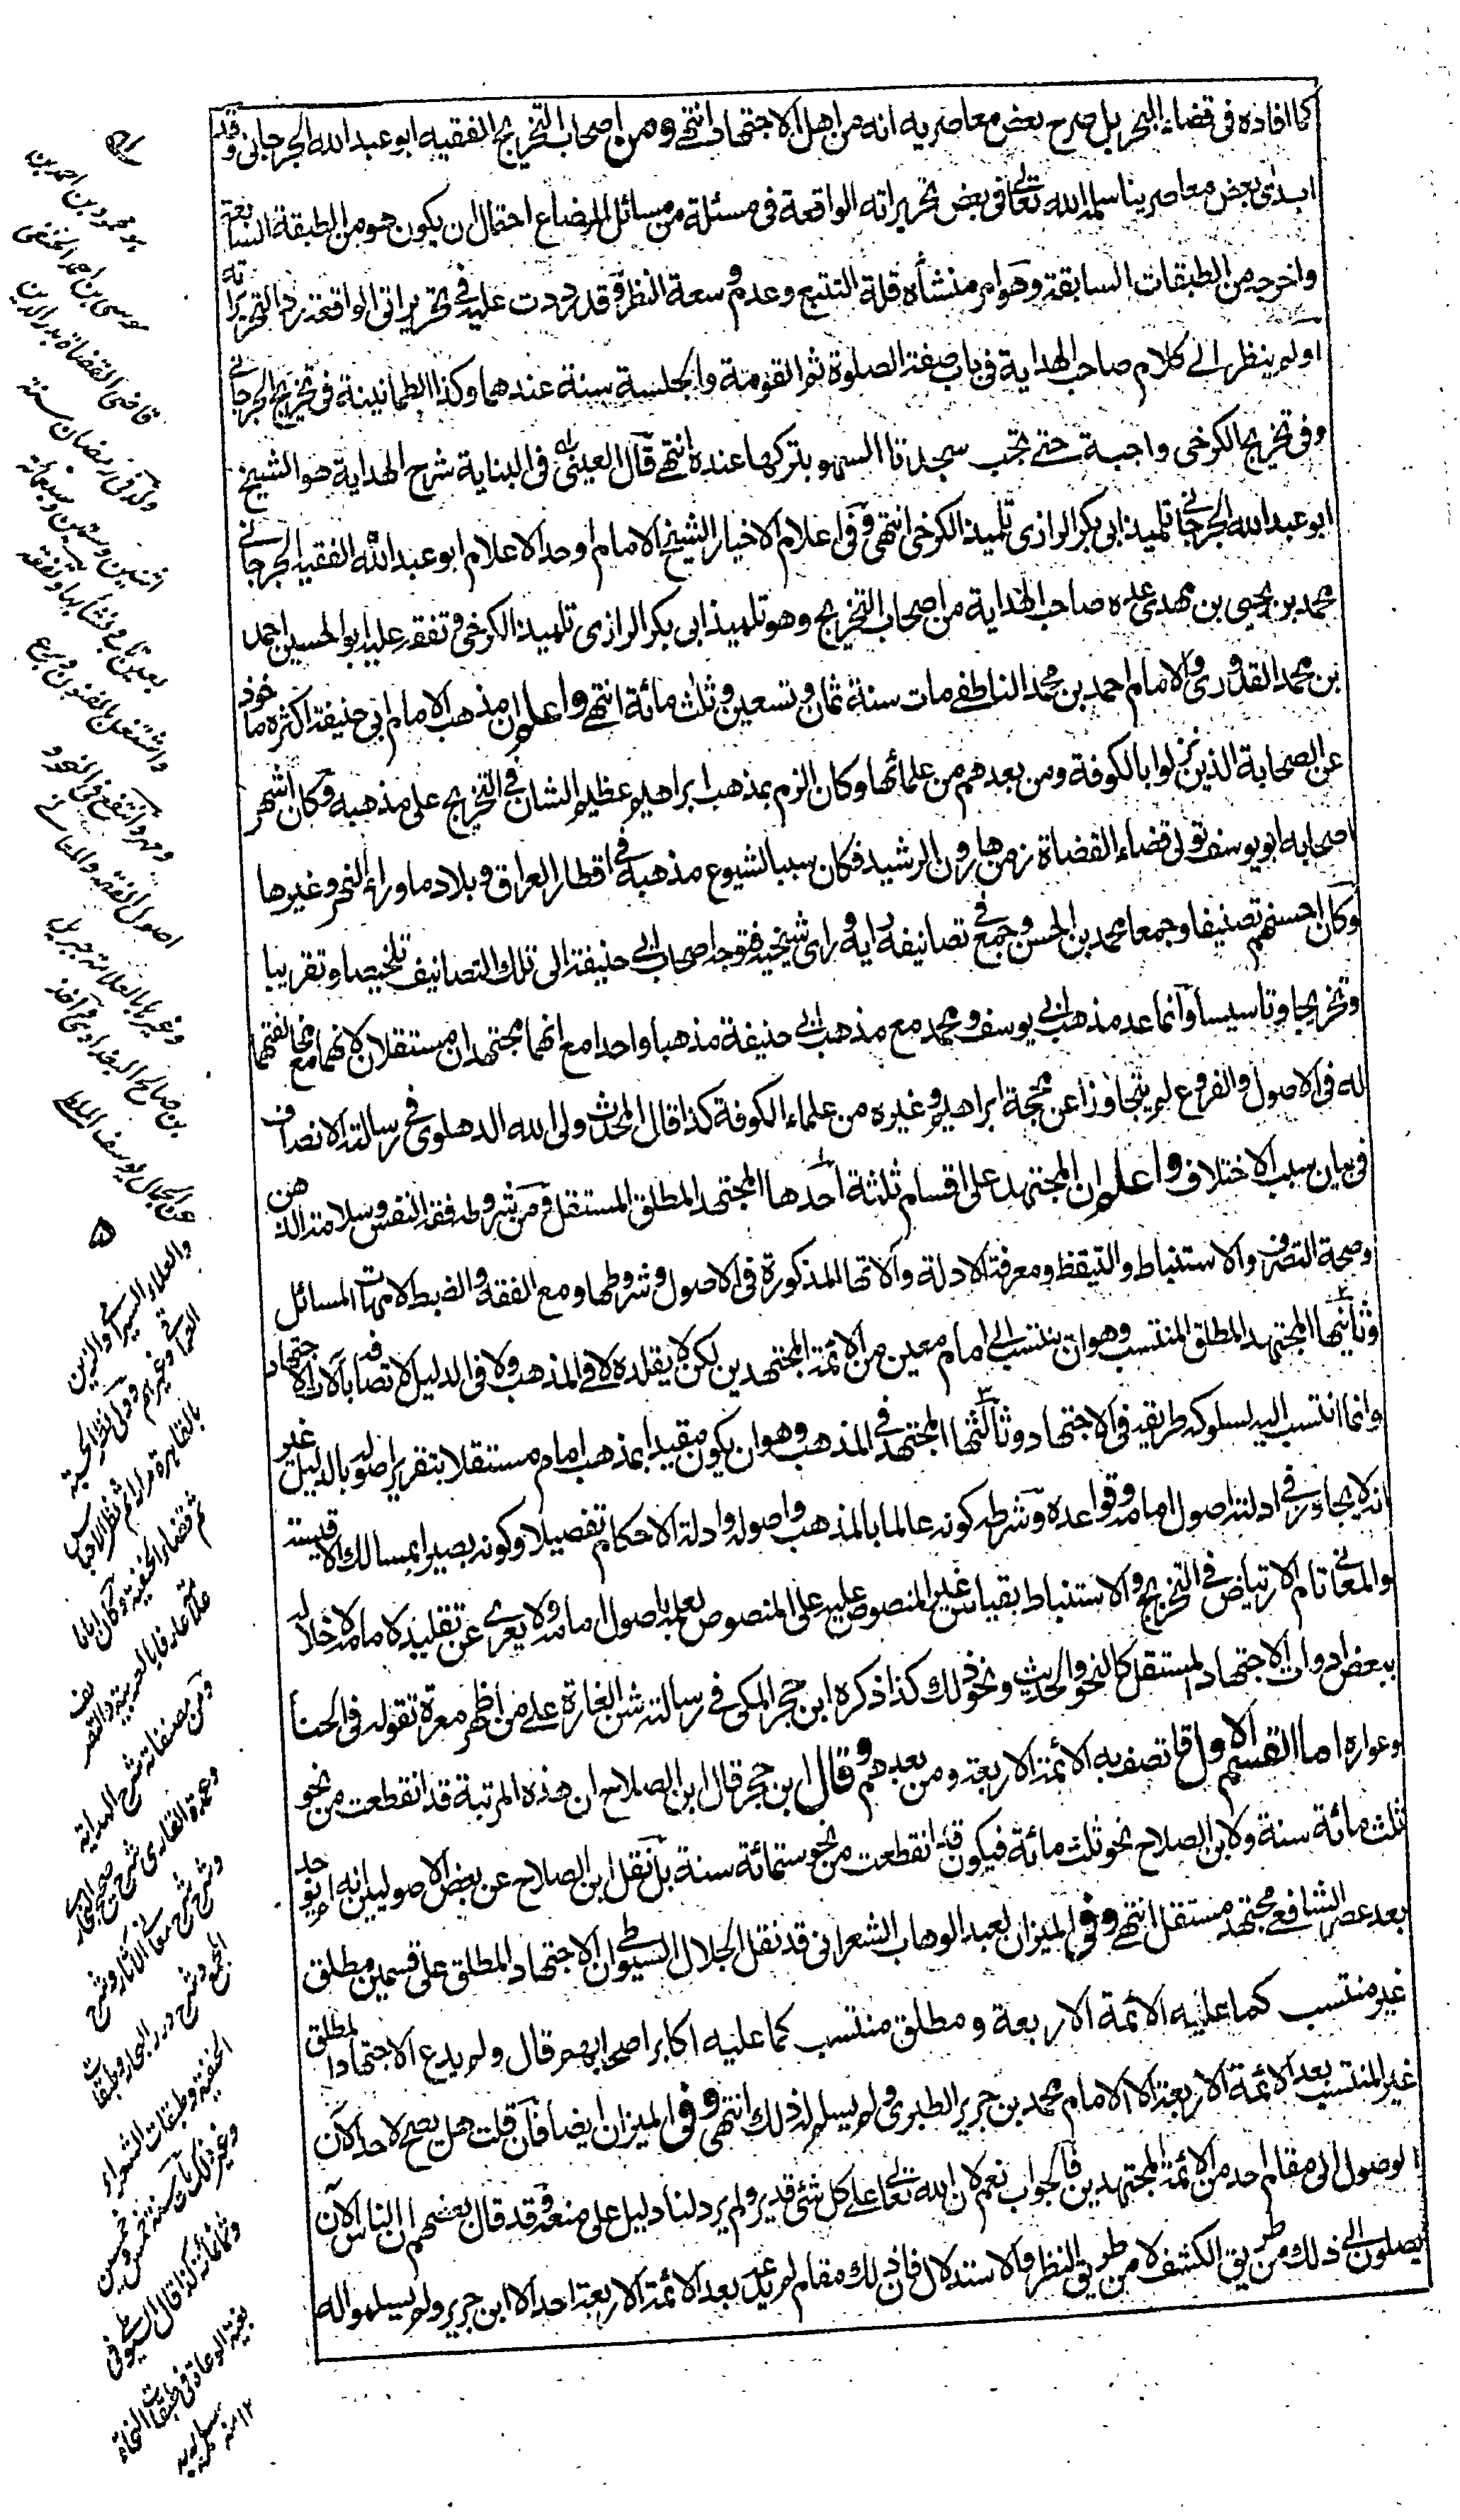 كما افاده فى قضاء البحر بل صرح بعض معاصريه انه من اهل الاجتهاد انتهى ومن اصحاب التخريج الفقيه ابو عبد الله الجرجانى وقد
ابدى بعض معاصرينا سلمه الله تعالى فى بعض تحريراته الواقعة فى مسئلة من مسائل الرضاع احتمال ان يكون هو من الطبقة السابعة
واخرجه من الطبقات السابقة وهو امر منشأه قلة التتبع وعدم وسعة النظر وقد رددت عليه فى تحريراتى الواقعة رد التحريراته
اولم ينظر الى كلام صاحب الهداية فى باب صفة الصلوة ثم القومة والجلسة سنة عندهما وكذا الطمانينة فى تخريج الجرجانى
وفى تخريج الكرخى واجبة حتى تجب سجدتا السهو بتركها عنده انتهى قال العينى فى البناية شرح الهداية هو الشيخ
ابو عبد الله الجرجانى تلميذ ابى بكر الرازى تلميذ الكرخى انتهى وفى اعلام الاخيار الشيخ الامام اوحد الاعلام ابو عبد الله الفقيه الجرجانى
محمد بن يحيى بن مهدى عده صاحب الهداية من اصحاب التخريج وهو تلميذ ابى بكر الرازى تلميذ الكرخى وتفقه عليه ابو الحسين احمد
بن محمد القدورى والامام احمد بن محمد الناطفى مات سنة ثمان وتسعين وثلث مائة انتهى واعلم ان مذهب الامام ابى حنيفة اكثره ماخوذ
عن الصحابة الذين نزلوا بالكوفة ومن بعدهم من علمائها وكان الزم بمذهب ابراهيم عظيم الشان فى التخريج على مذهبه وكان اشهر
اصحابه ابو يوسف تولى قضاء القضاة زمن هارون الرشيد فكان سببا لشيوع مذهبه فى اقطار العراق وبلاد ماوراء النهر وغيرها
وكان احسنهم تصنيفا وجمعا محمد بن الحسن وجمع فى تصانيفه رايه وراى شيخيه فتوجه اصحاب ابى حنيفة الى تلك التصانيف تلخيصا وتقريبا
وتخريجا وتاسيسا وانما عد مذهب ابى يوسف ومحمد مع مذهب ابى حنيفة مذهبا واحدا مع انهما مجتهدان مستقلان لانهما مع مخالفتهما
له فى الاصول والفروع لم يتجاوزا عن محجة ابراهيم وغيره من علماء الكوفة كذا قال المحدث ولى الله الدهلوى فى رسالته الانصاف
فى بيان سبب الاختلاف واعلم ان المجتهد على اقسام ثلثة احدها المجتهد المطلق المستقل ومن شروطه فقه النفس وسلامة الذهن
وصحة التصرف والاستنباط والتيقظ ومعرفة الادلة وآلاتها المذكورة فى الاصول وشروطها ومع الفقه والضبط لامهات المسائل
وثانيها المجتهد المطلق المنتسب وهو ان ينتسب الى امام معين من الائمة المجتهدين لكن لا يقلده لا فى المذهب ولا فى الدليل لاتصافه بآلات الاجتهاد
وانما انتسب اليه لسلوكه طريقه فى الاجتهاد وثالثها المجتهد فى المذهب وهو ان يكون مقيدا بمذهب امام مستقلا بتقرير اصوله بالدليل غير
انه لا يجاوز فى ادلته اصول امامه وقواعده وشرطه كونه عالما بالمذهب واصوله وادلة الاحكام تفصيلا وكونه بصيرا بمسالك الاقيسة
والمعانى تام الارتياض فى التخريج والاستنباط بقياس غير المنصوص عليه على المنصوص لعلمه باصول امامه ولا يعرى عن تقليده لامامه لاخلاله
ببعض ادوات الاجتهاد المستقل كالنحو والحديث ونحو ذلك كذا ذكره ابن حجر المكى فى رسالته شن الغارة على من اظهر معرة تقوله فى الحنا
وعواره اما القسم الاول فاتصف به الائمة الاربعة ومن بعدهم وقال ابن حجر قال ابن الصلاح ان هذه المرتبة قد انقطعت من نحو
ثلث مائة سنة ولابن الصلاح نحو ثلث مائة فيكون قد انقطعت من نحو ستمائة سنة بل نقل ابن الصلاح عن بعض الاصوليين انه لم يوجد
بعد عصر الشافعى مجتهد مستقل انتهى وفى الميزان لعبد الوهاب الشعرانى قد نقل الجلال السيوطى ان الاجتهاد المطلق على قسمين مطلق
غير منتسب كما عليه الائمة الاربعة ومطلق منتسب كما عليه اكابر اصحابهم قال ولم يدع الاجتهاد المطلق
غير المنتسب بعد الائمة الاربعة الا الامام محمد بن جرير الطبرى ولم يسلم له ذلك انتهى وفى الميزان ايضا فان قلت هل يصح لاحد الآن
الوصول الى مقام احد من الائمة المجتهدين فالجواب نعم لان الله تعالى على كل شئ قدير ولم يرد لنا دليل على منعه وقد قال بعضهم ان الناس الآن
يصلون الى ذلك من طريق الكشف لا من طريق النظر والاستدلال فان ذلك مقام لم يدعه بعد الائمة الاربعة احد الا ابن جرير ولم يسلموا له
هو محمود بن احمد بن
موسى بن احمد الحنفى
قاضى القضاة بدر الدين
ولد فى رمضان سنة
اثنتين وستين وسبعمائة
بعينتاب ونشأ بها وتفقه
واشتغل بالفنون وبرع
ومهر وانتفع فى النحو و
اصول الفقه والمعانى
وغيرها بالعلامة جبريل
بن صالح البغدادى واخذ
عن الجمال يوسف الملطى
والعلاء السيرامى والزين
العراقى وغيرهم وولى نظر الحسبة
بالقاهرة مرارا ثم نظر الاحباس
ثم قضاء الحنفية وكان اماما
علامة عارفا بالعربية والتصريف
ومن مصنفاته شرح الهداية
وعمدة القارى شرح صحيح البخارى
وشرح معانى الآثار وشرح
المجمع وشرح درر البحار وطبقات
الحنفية وطبقات الشعراء
وغير ذلك مات سنة خمس وخمسين
وثمانمائة كذا قال السيوطى فى
بغية الوعاة فى طبقات النحاة
١٢ منه